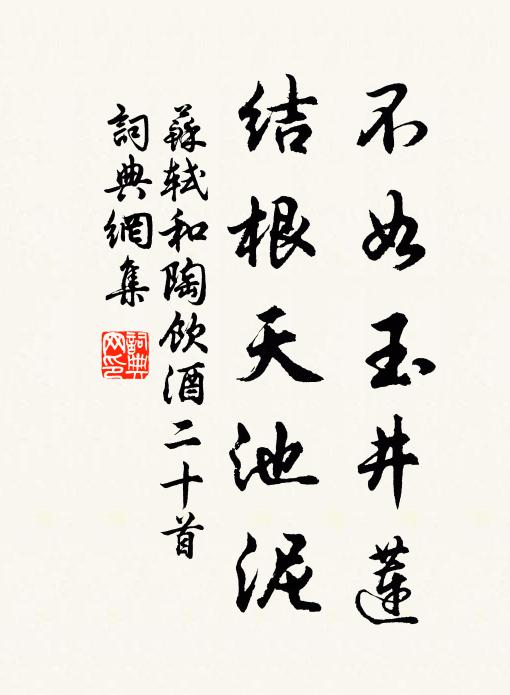 不如玉井蓮
结根天池泥
蘇軾和陶飲酒二十首
詞典網集
詞典網印